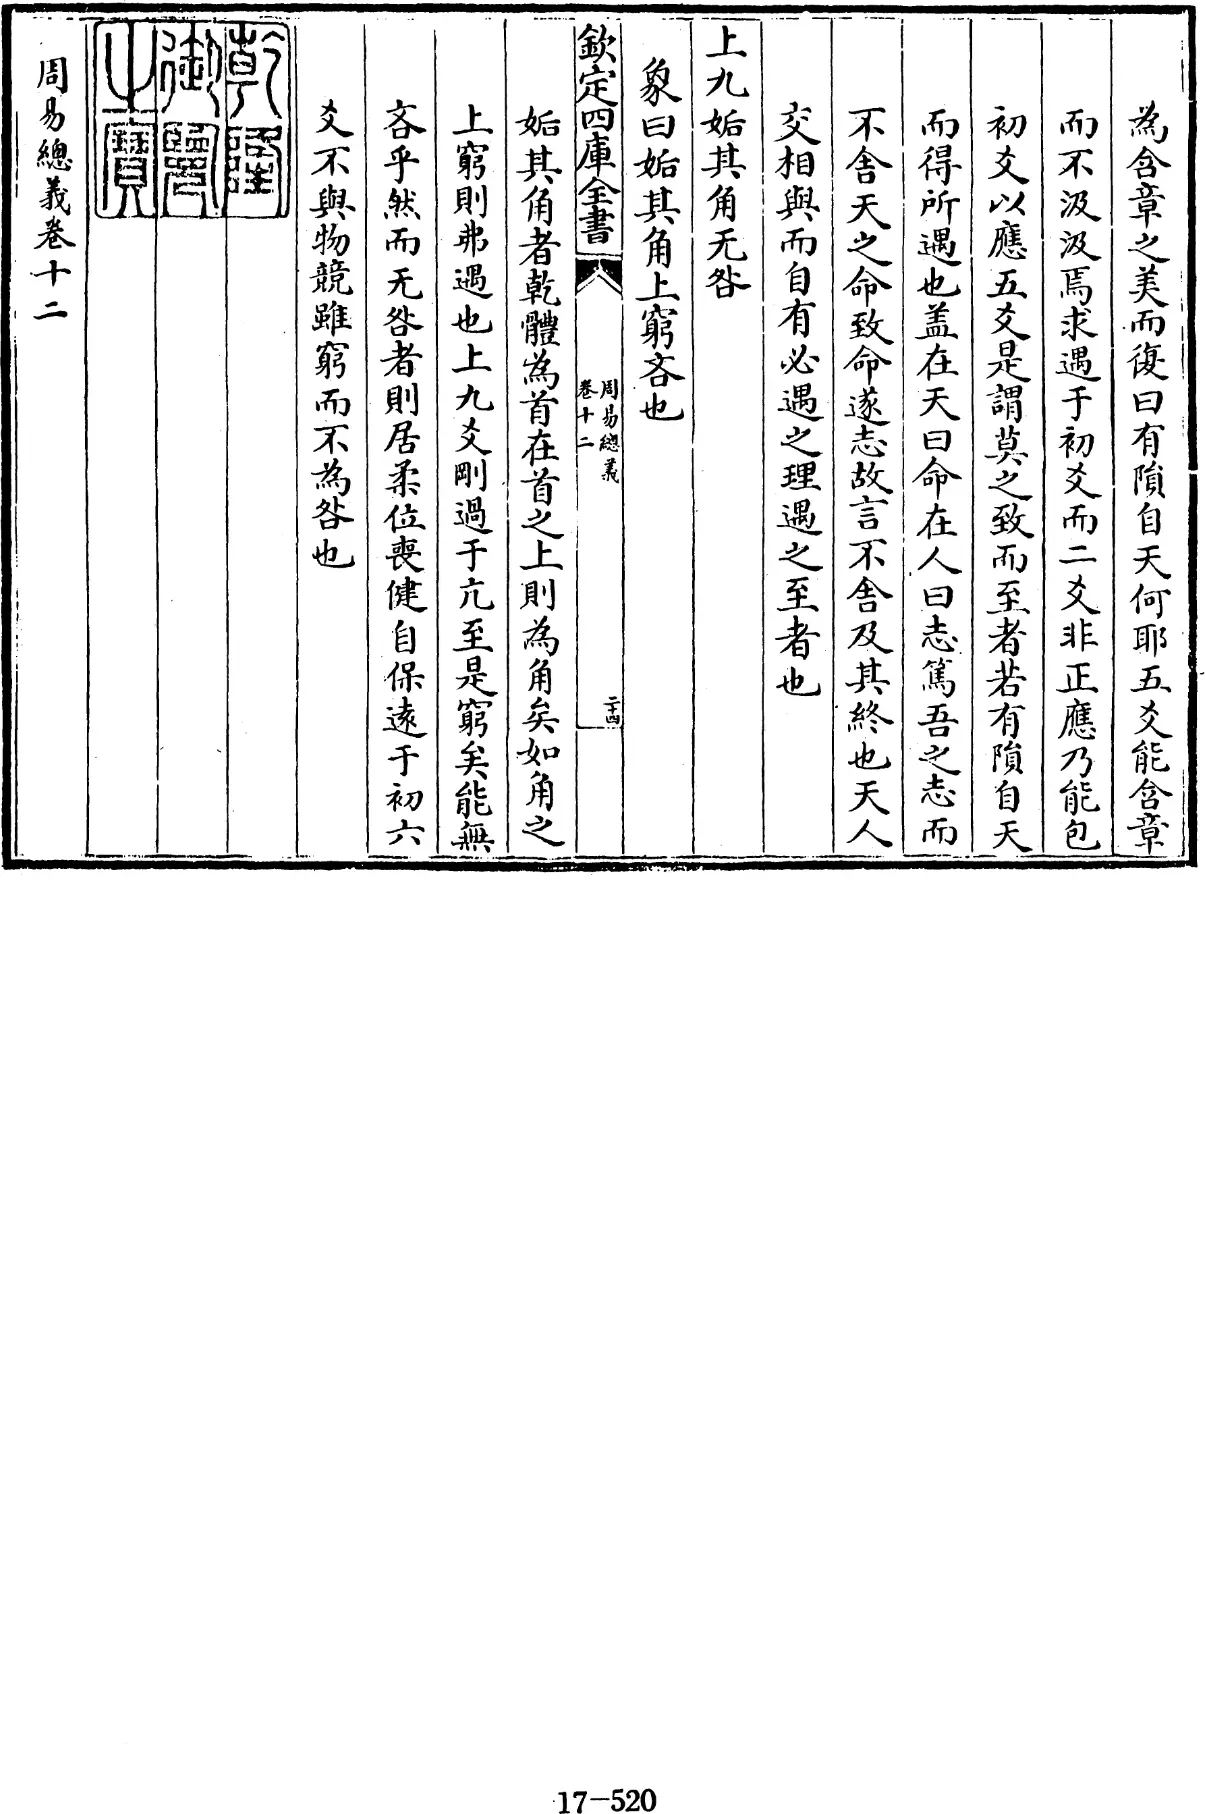 為含章之美而復曰有隕自天何耶五爻能含章
而不汲汲焉求遇于初爻而二爻非正應乃能包
初爻以應五爻是謂莫之致而至者若有隕自天
而得所遇也蓋在天曰命在人曰志篤吾之志而
不舍天之命致命遂志故言不舍及其終也天人
交相與而自有必遇之理遇之至者也
上九姤其角无咎
象曰姤其角上窮吝也
欽定四庫全書
周易總義
卷十二
二十四
姤其角者乾體為首在首之上則為角矣如角之
上窮則弗遇也上九爻剛過于亢至是窮矣能無
吝乎然而无咎者則居柔位喪健自保遠于初六
爻不與物競雖窮而不為咎也
乾隆
御覽
之寶
周易總義卷十二
17-520